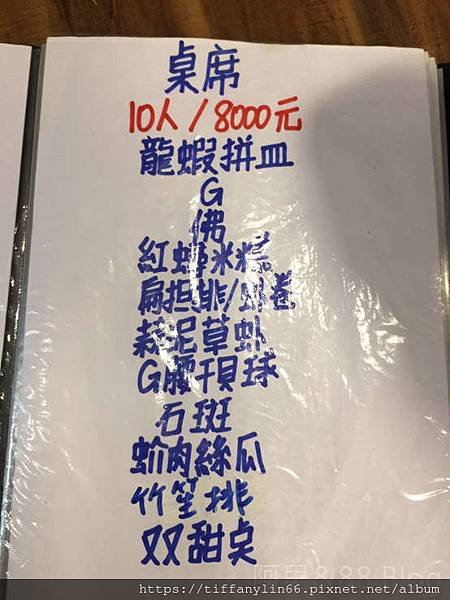 桌席
10人/8000元
龍蝦拼皿
G
佛
紅蟳米糕
扁担排/蝦卷
蒜泥草虾
G腰干貝球
石斑
蚧肉絲瓜
竹笙排
双甜点
阿果8888 Blog
https://tiffanylin66.pixnet.net/album